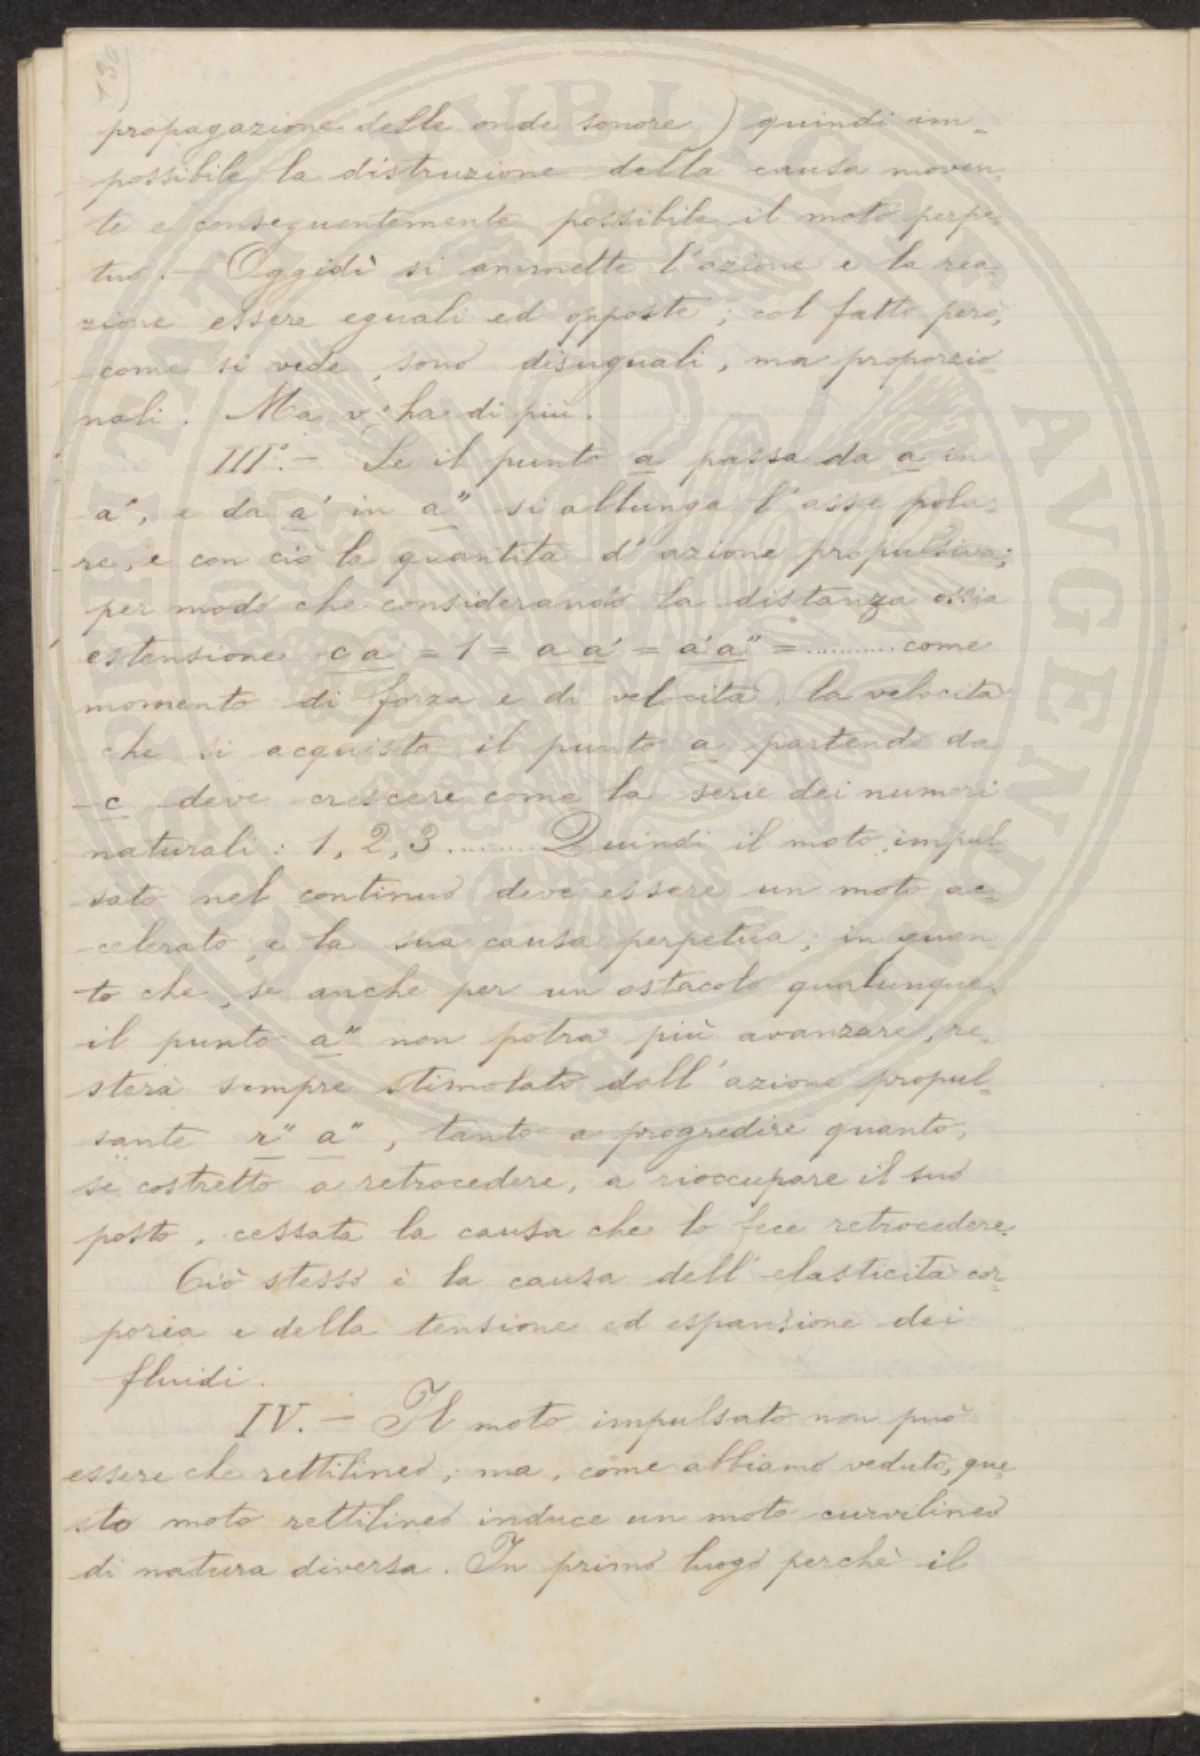 130
propagazione delle onde sonore) quindi im-
possibile la distruzione della causa moven-
te e conseguentemente possibile il moto perpe-
tuo. — Oggidì si ammette l'azione e la rea-
zione essere eguali ed opposte; col fatto però,
come si vede, sono disuguali, ma proporzio-
nali. Ma v'ha di più.
III°. — Se il punto a passa da a in
a', e da a' in a" si allunga l'asse pola-
re, e con ciò la quantità d'azione propulsiva;
per modo che considerando la distanza ossia
estensione c a = 1 = a a' = a' a" = ......... come
momento di forza e di velocità, la velocità
che si acquista il punto a partendo da
c deve crescere come la serie dei numeri
naturali: 1, 2, 3 ........ Quindi il moto impul-
sato nel continuo deve essere un moto ac-
celerato, e la sua causa perpetua; in quan-
to che, se anche per un ostacolo qualunque
il punto a" non potrà più avanzare, re-
sterà sempre stimolato dall'azione propul-
sante r" a", tanto a progredire quanto,
se costretto a retrocedere, a rioccupare il suo
posto, cessata la causa che lo fece retrocedere.
Ciò stesso è la causa dell'elasticità cor-
porea e della tensione ed espansione dei
fluidi.
IV. — Il moto impulsato non può
essere che rettilineo; ma, come abbiamo veduto, que-
sto moto rettilineo induce un moto curvilineo
di natura diversa. In primo luogo perchè il
PVBLICAE
VTILITATI
AVGENDAE